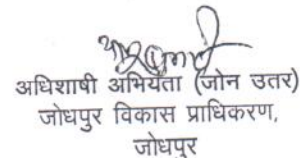 अधिशाषी अभियंता (जोन उतर)
जोधपुर विकास प्राधिकरण,
जोधपुर